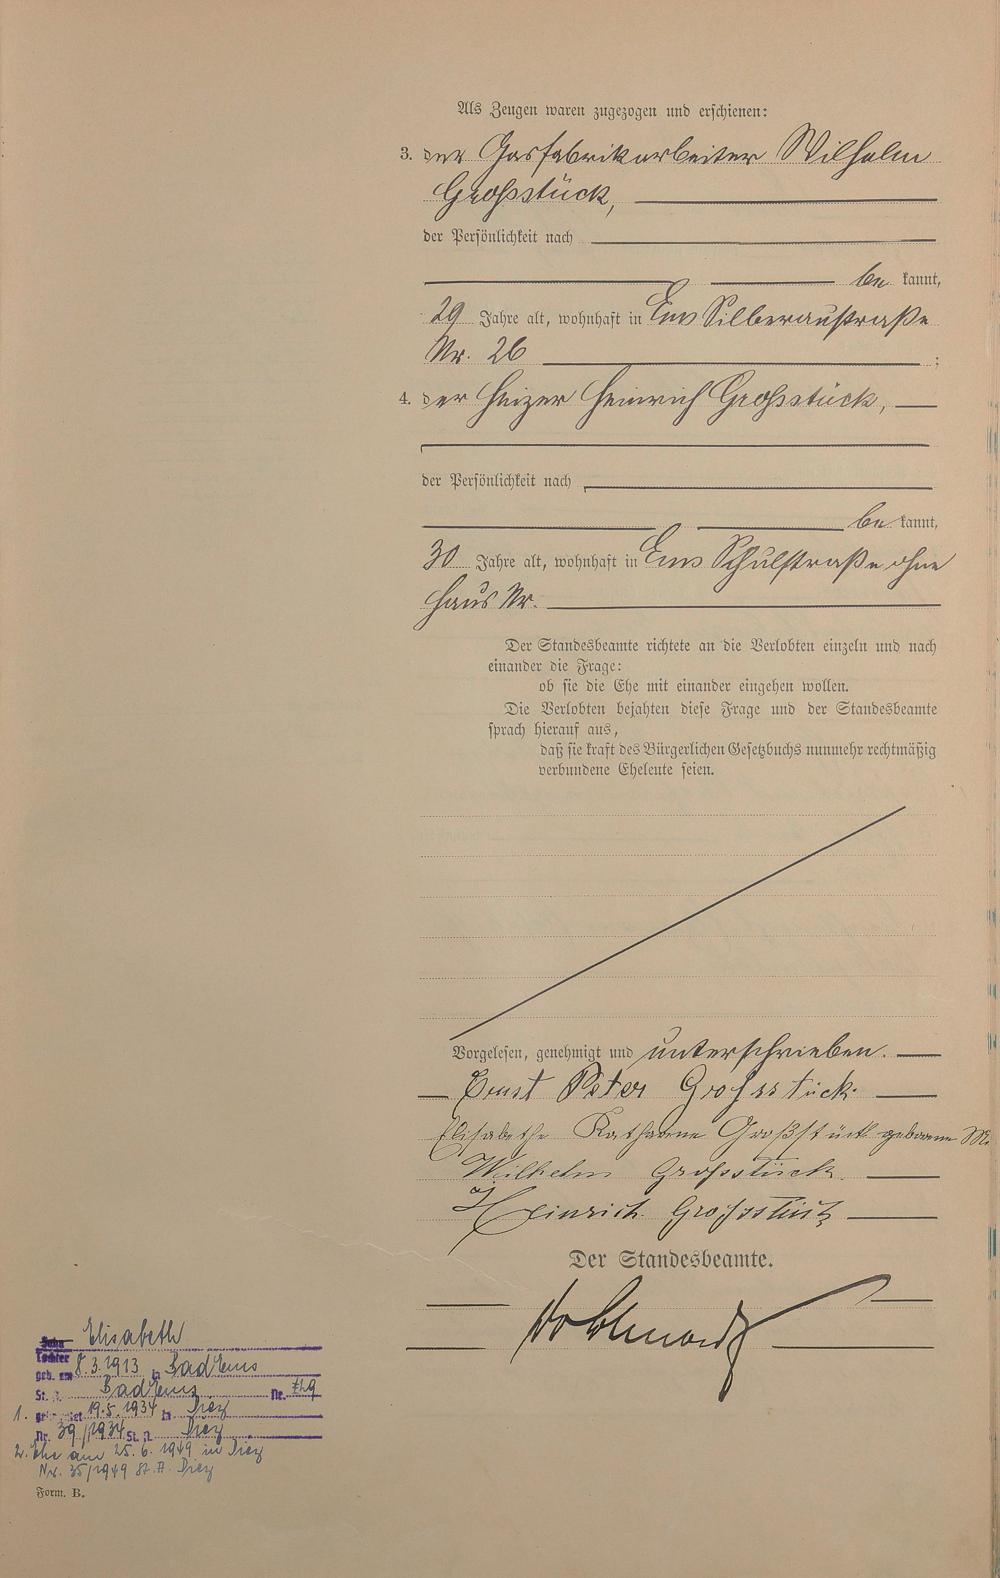 Als Zeugen waren zugezogen und erschienen:
3. der Gasfabrikarbeiter Wilhelm
Großstück,
der Persönlichkeit nach
be kannt,
29 Jahre alt, wohnhaft in Ems Silberaustraße
Nr. 26 ;
4. der Heizer Heinrich Großstück,
der Persönlichkeit nach
be kannt,
30 Jahre alt, wohnhaft in Ems Schulstraße ohne
Haus Nr.
Der Standesbeamte richtete an die Verlobten einzeln und nach
einander die Frage:
ob sie die Ehe mit einander eingehen wollen.
Die Verlobten bejahten diese Frage und der Standesbeamte
sprach hierauf aus,
daß sie kraft des Bürgerlichen Gesetzbuchs nunmehr rechtmäßig
verbundene Eheleute seien.
Vorgelesen, genehmigt und unterschrieben.
Ernst Peter Grossstück
Elisabethe Katharine Großstück geborene
Wilhelm Grossstück
Heinrich Grossstück
Der Standesbeamte.
Sohn Elisabeth
Tochter
geb. am 8.3.1913 in Bad Ems
St. A. Bad Ems Nr.
1. geheiratet 19.5.1934 in Diez
Nr. 39/1934 St. A. Diez
2. Ehe am 25.6.1949 in Diez
Nr. 35/1949 St. A. Diez
Form. B.